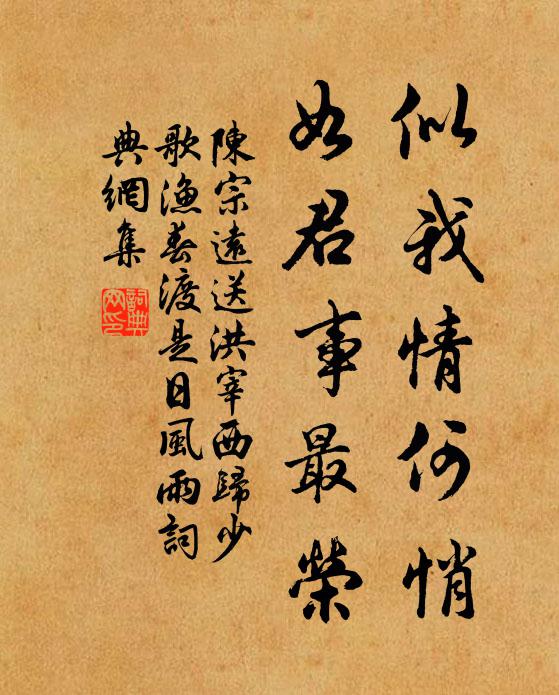 似我情何悄
如君事最榮
陳宗遠送洪宰西歸少
歌漁春渡是日風雨詞
典網集
詞典網印